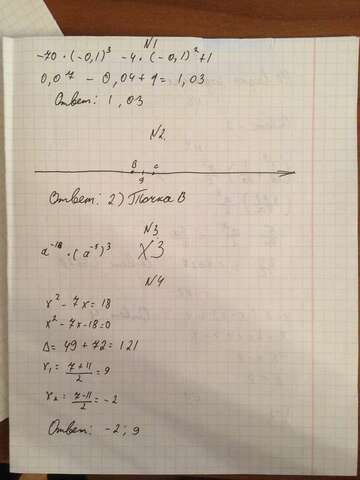 N1
-70·(-0,1)³ -4·(-0,1)²+1
0,07 - 0,04+1=1,03
Ответ: 1,03
N2.
B c
9
Ответ: 2) Точка B
N3
a⁻¹⁸·(a⁻⁵)³ X3
N4
x² - 7x = 18
x² - 7x - 18=0
Д= 49 + 72= 121
x₁ = 7+11/2 = 9
x₂ = 7-11/2 = -2
Ответ: -2; 9